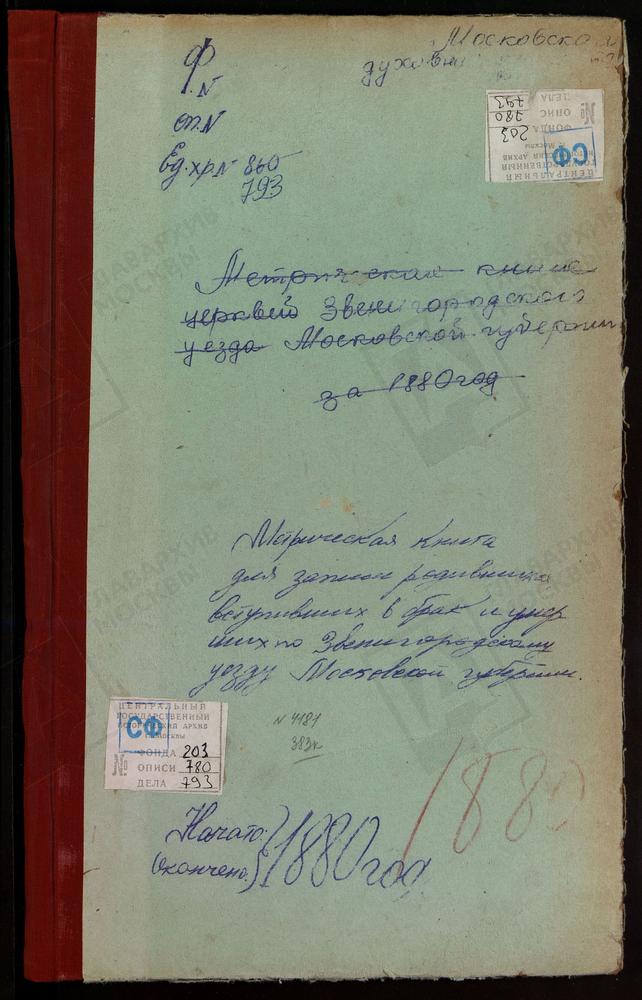 Московской
духовн
Ф.
N
оп. N
Ед. хр. N 860
793
№
ДЕЛА 793
ОПИС 780
ФОНДА 203
г. Москвы
СФ
ЦЕНТРАЛЬНЫЙ
Метрическая книга
церквей Звенигородского
уезда Московской губернии
за 1880 год
Метрическая книга
для записи родившихся
вступивших в брак и умер
ших по Звенигородскому
уезду Московской губернии.
N 4181
383к
ЦЕНТРАЛЬНЫЙ
ГОСУДАРСТВЕННЫЙ
ИСТОРИЧЕСКИЙ АРХИВ
г. Москвы
СФ
№ ФОНДА 203
ОПИСИ 780
ДЕЛА 793
1880
Начато:
(окончено:) 1880 год
ГЛАВАРХИВ
МОСКВЫ